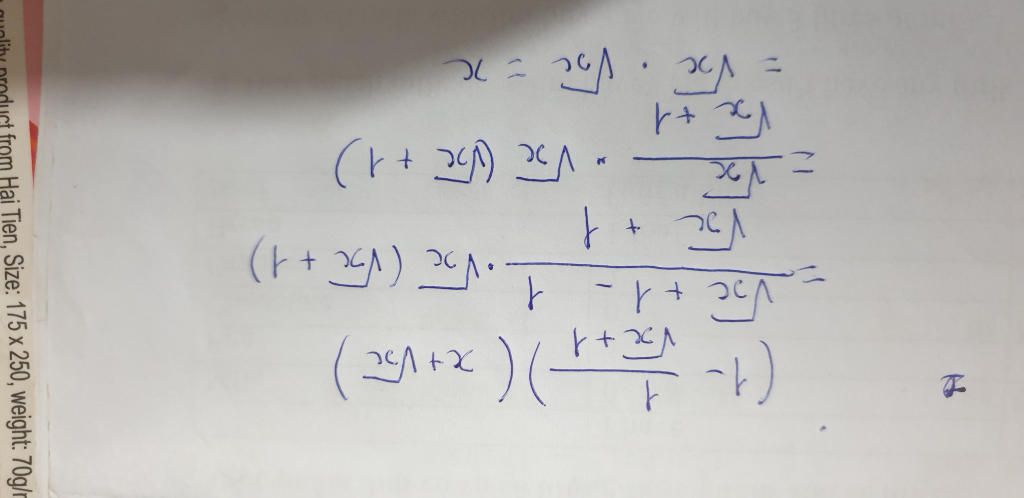 I
(1 - 1/(√x + 1)) (x + √x)
= (√x + 1 - 1)/(√x + 1) · √x (√x + 1)
= √x/(√x + 1) · √x (√x + 1)
= √x · √x = x
quality product from Hai Tien, Size: 175 x 250, weight: 70g/